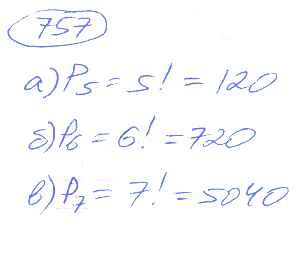 757
а) P₅ = 5! = 120
б) P₆ = 6! = 720
в) P₇ = 7! = 5040